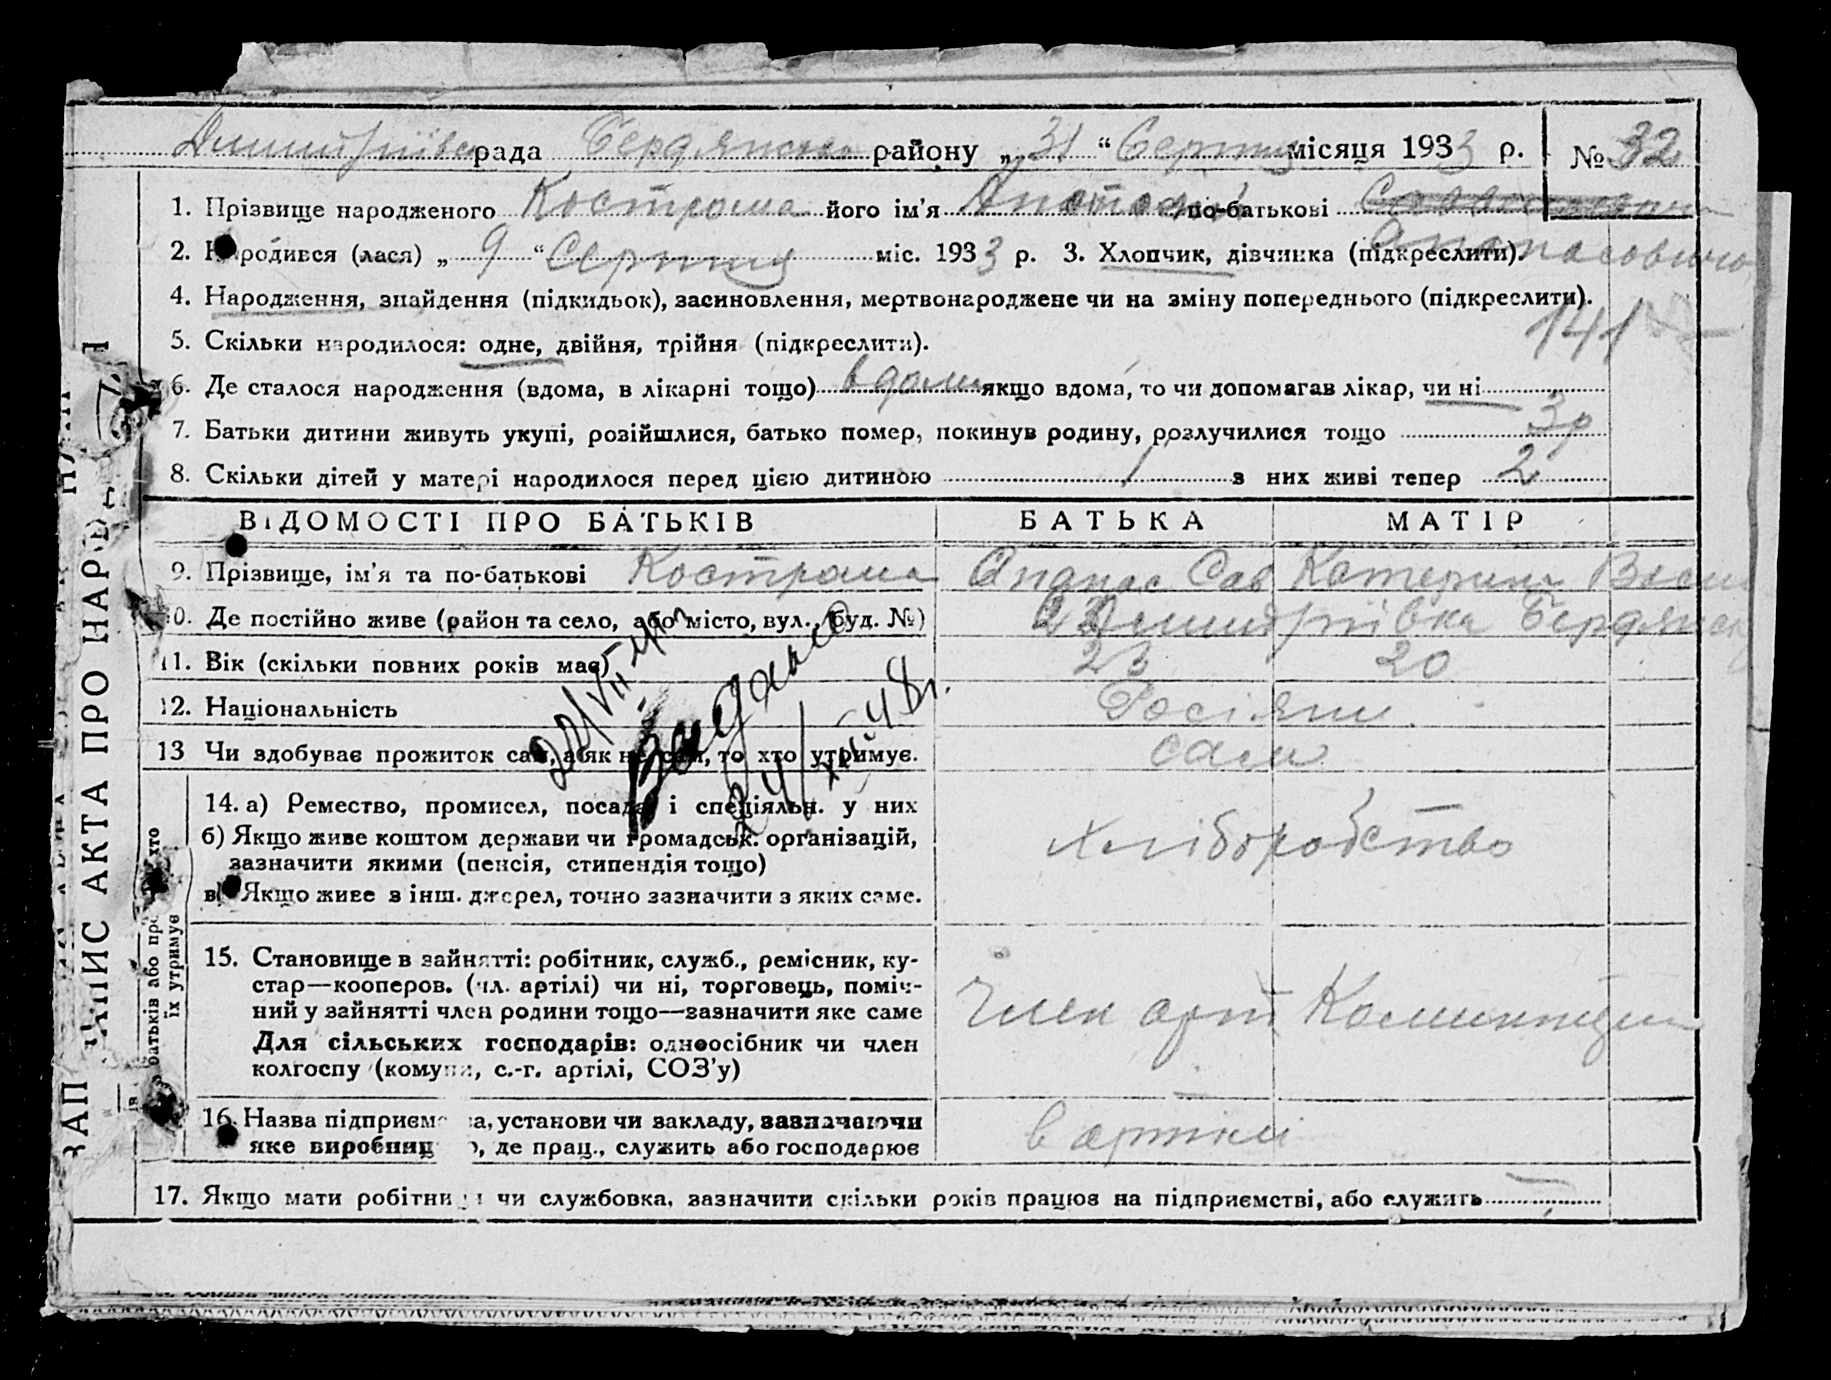 Дмитрівка рада Бердянсько району „ 31 “ Серпня місяця 1933 р. № 32
1. Прізвище народженого Кострома його ім'я Анатолій по-батькові
Опанасович
2. Народився (лася) „ 9 “ Серпня міс. 1933 р. 3. Хлопчик, дівчинка (підкреслити).
4. Народження, знайдення (підкидьок), засиновлення, мертвонароджене чи на зміну попереднього (підкреслити).
141
5. Скільки народилося: одне, двійня, трійня (підкреслити).
6. Де сталося народження (вдома, в лікарні тощо) вдома якщо вдома, то чи допомагав лікар, чи ні
7. Батьки дитини живуть укупі, розійшлися, батько помер, покинув родину, розлучилися тощо 3р
8. Скільки дітей у матері народилося перед цією дитиною 1 з них живі тепер 2
ВІДОМОСТІ ПРО БАТЬКІВ БАТЬКА МАТІР
9. Прізвище, ім'я та по-батькові Кострома Опанас Сав Катерина Васил
10. Де постійно живе (район та село, або місто, вул., буд. №) Дмитрівка Бердянськ
11. Вік (скільки повних років має) 23 20
12. Національність Росіяни
13 Чи здобуває прожиток сам, а як не сам, то хто утримує. сам
14. а) Ремество, промисел, посада і спеціяльн. у них хліборобство
б) Якщо живе коштом держави чи громадськ. організацій,
зазначити якими (пенсія, стипендія тощо)
в) Якщо живе з інш. джерел, точно зазначити з яких саме.
15. Становище в зайнятті: робітник, служб., ремісник, ку-
стар—кооперов. (чл. артілі) чи ні, торговець, поміч-
ний у зайнятті член родини тощо—зазначити яке саме Член арт
Для сільських господарів: одноосібник чи член
колгоспу (комуни, с.-г. артілі, СОЗ'у)
16. Назва підприємства, установи чи закладу, зазначаючи
яке виробництво, де прац., служить або господарює в артілі
17. Якщо мати робітниця чи службовка, зазначити скільки років працює на підприємстві, або служить
24/XII-48 г.
ЗАПИС АКТА ПРО НАРОД
батьків або про хто
їх утримує